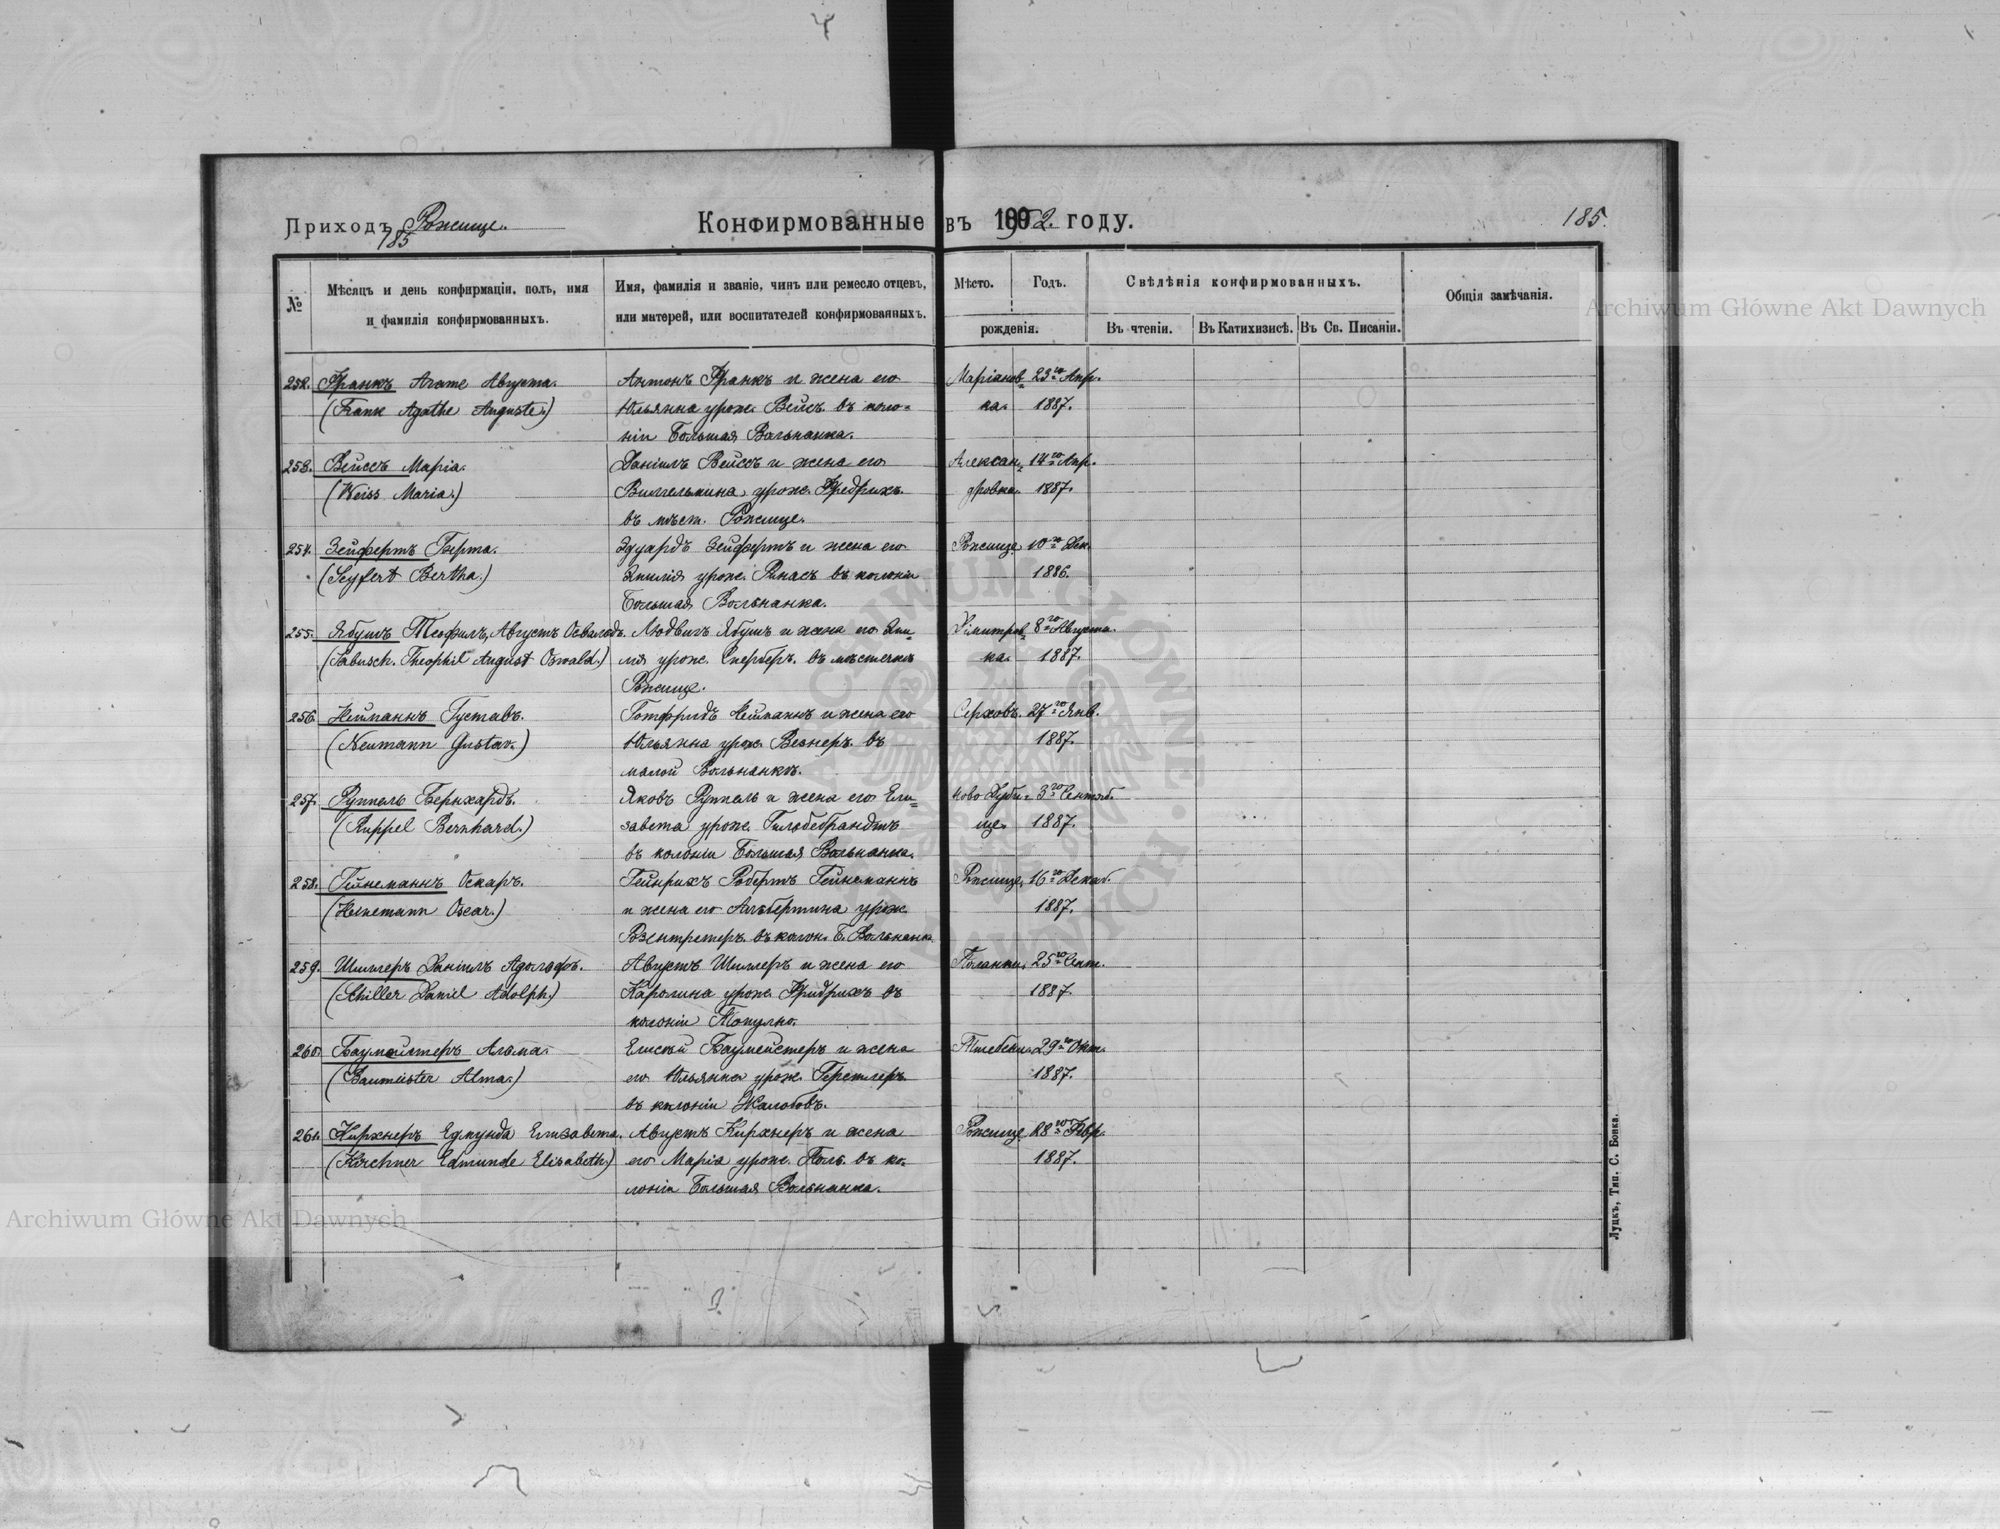 Приходъ Рожище.
185
Конфирмованные въ 1902. году.
185.
№
Мѣсяцъ и день конфирмаціи, полъ, имя
и фамилія конфирмованныхъ.
Имя, фамилія и званіе, чинъ или ремесло отцевъ,
или матерей, или воспитателей конфирмованныхъ.
Мѣсто.
Годъ.
рожденія.
Свѣдѣнія конфирмованныхъ.
Въ чтеніи.
Въ Катихизисѣ.
Въ Св. Писаніи.
Общія замѣчанія.
252. Франкъ Агате Августа. Антонъ Франкъ и жена его Маріанов- 23го Апр.
(Frank Agathe Auguste.) Юльянна урож. Вейсъ въ коло- ка. 1887.
ніи Большая Вольнанка.
253. Вейссъ Марія. Даніилъ Вейссъ и жена его Алексан- 14го Апр.
(Weiss Maria.) Вильгельмина урож. Фредрихъ дровка. 1887.
въ мѣст. Рожище.
254. Зейфертъ Берта. Эдуардъ Зейфертъ и жена его Рожище 10го Дек.
(Seyfert Bertha.) Эмилія урож. Ринасъ въ колоніи 1886.
Большая Вольнанка.
255. Ябушъ Теофилъ, Августъ Освальдъ. Людвигъ Ябушъ и жена его Эми- Димитров- 8го Августа.
(Jabusch Theophil August Oswald.) лія урож. Сперберъ въ мѣстечкѣ ка. 1887.
Рожище.
256. Нейманъ Густавъ. Готфридъ Нейманъ и жена его Серховъ. 27го Янв.
(Neumann Gustav.) Юльянна урож. Везнеръ въ 1887.
малой Вольнанкѣ.
257. Руппель Бернхардъ. Яковъ Руппель и жена его Ели- Ново Дуби- 3го Сентяб.
(Ruppel Bernhard.) завета урож. Гильдебрандтъ ще. 1887.
въ колоніи Большая Вольнанка.
258. Гейнеманнъ Оскаръ. Гейнрихъ Робертъ Гейнеманнъ Рожище. 16го Декаб.
(Heinemann Oscar.) и жена его Альбертина урож. 1887.
Розентретеръ въ колон. Б. Вольнанка
259. Шиллеръ Даніилъ Адольфъ. Августъ Шиллеръ и жена его Поланки. 25го Сент.
(Schiller Daniel Adolph.) Каролина урож. Фридрихъ въ 1887.
колоніи Топульно.
260. Баумейстеръ Альма. Елисѣй Баумейстеръ и жена 29го Окт.
(Baumeister Alma.) его Юльянна урож. Герстлеръ 1887.
въ колоніи Жалобовъ.
261. Кирхнеръ Едмунда Елизавета. Августъ Кирхнеръ и жена Рожище 28го Февр.
(Kirchner Edmunde Elisabeth.) его Марія урож. Поль въ ко- 1887.
лоніи Большая Вольнанка.
Луцкъ, Тип. С. Бонка.
Archiwum Główne Akt Dawnych
Archiwum Główne Akt Dawnych
ARCHIWUM GŁÓWNE